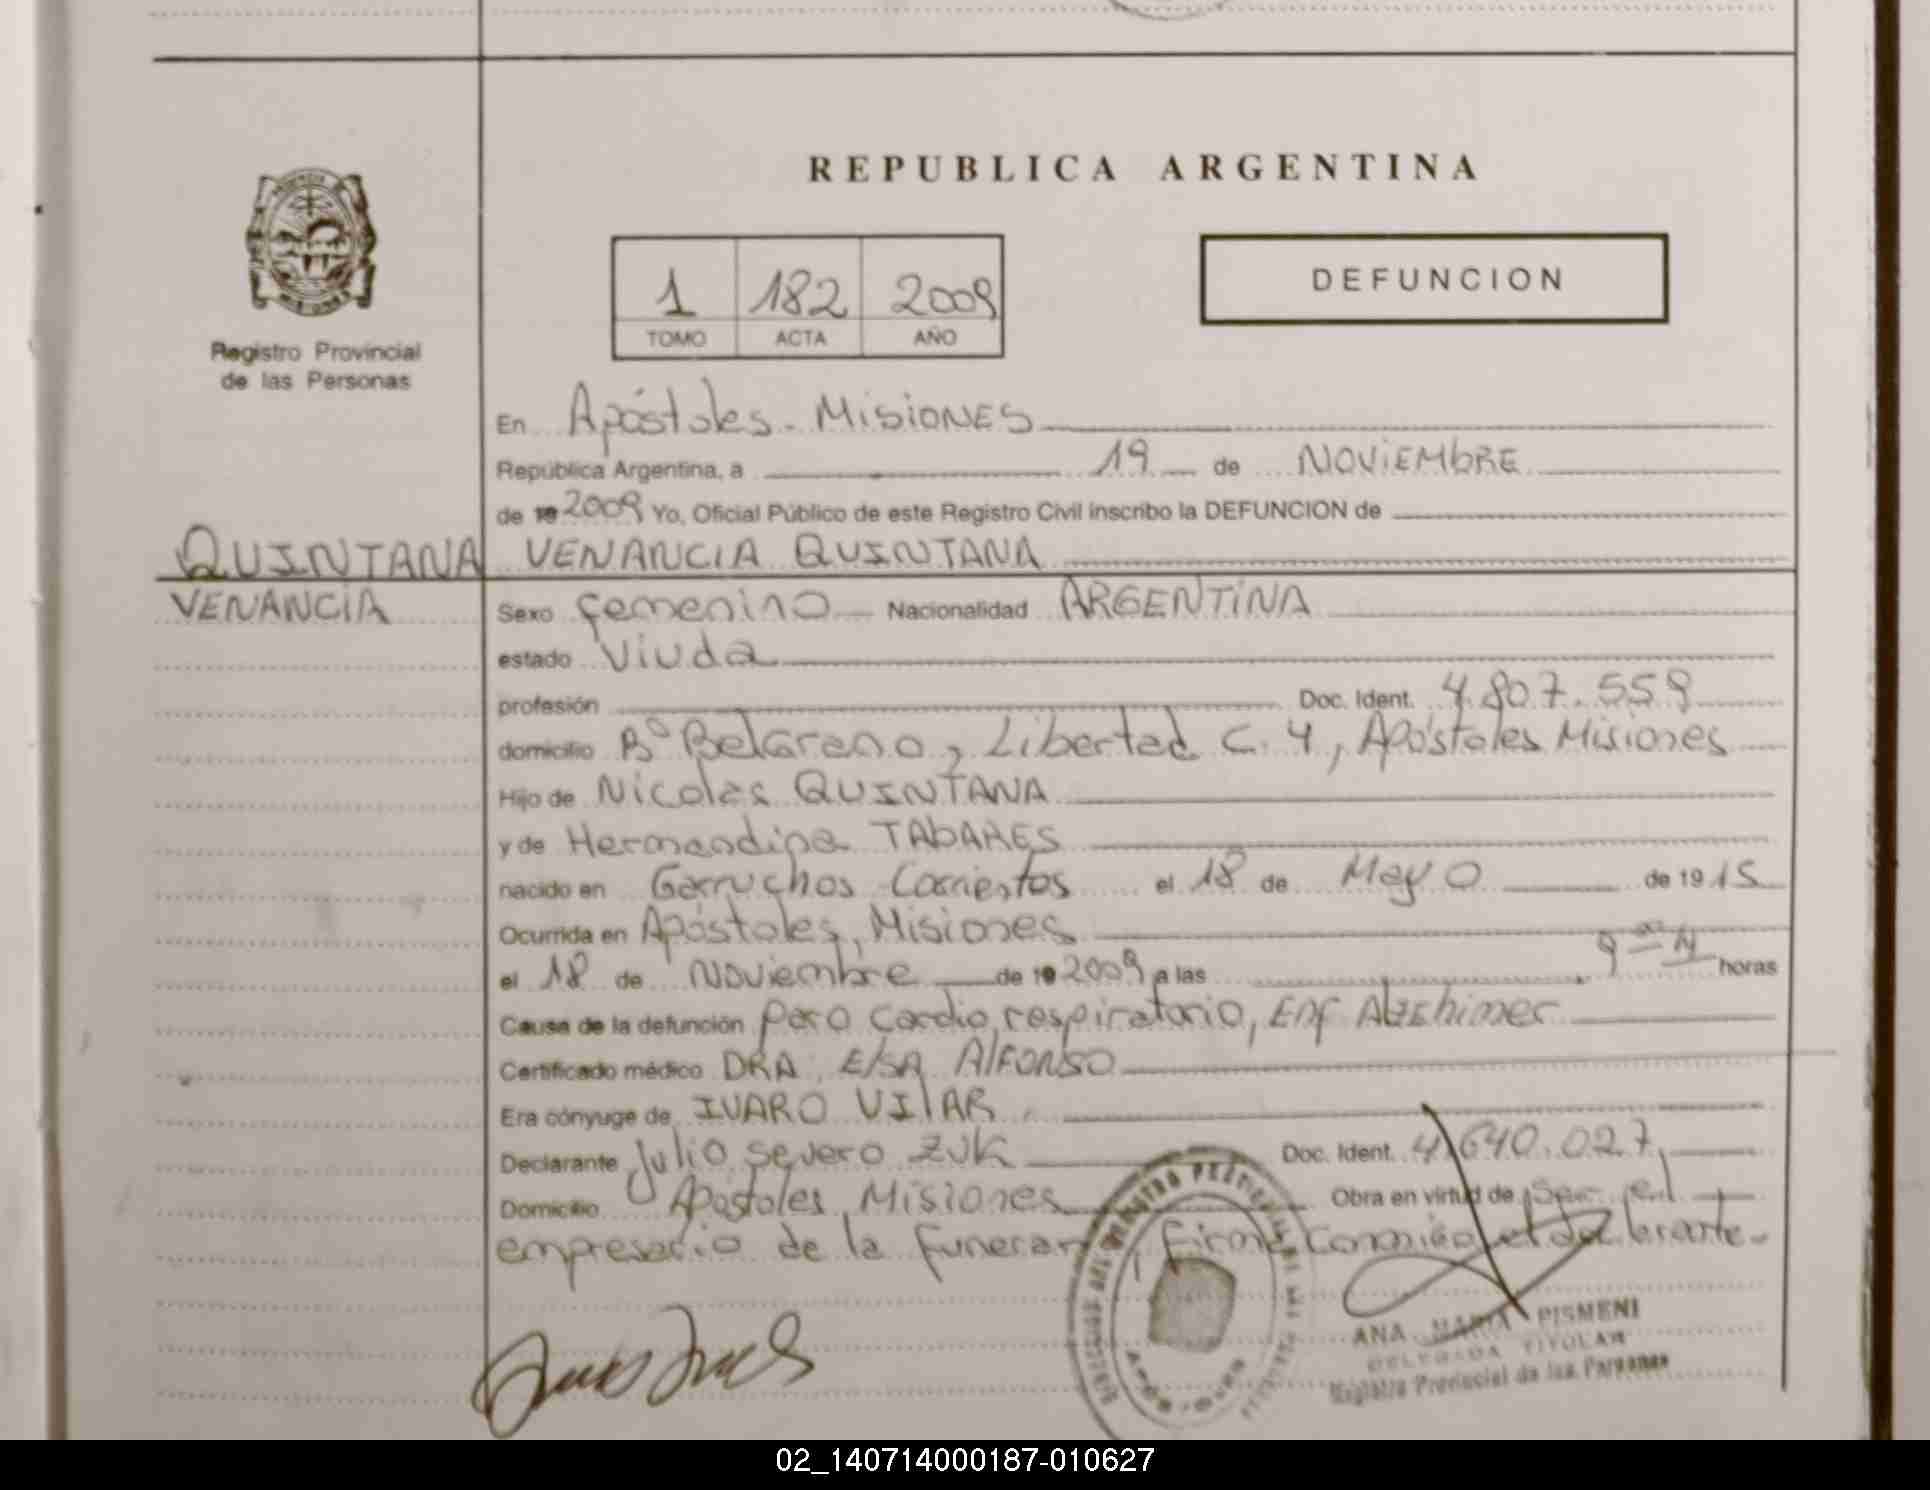 REPUBLICA ARGENTINA
DEFUNCION
1 182 2009
TOMO ACTA AÑO
Registro Provincial
de las Personas
En Apóstoles - MISIONES
República Argentina, a 19 de NOVIEMBRE
de 19 2009 Yo, Oficial Público de este Registro Civil inscribo la DEFUNCION de
QUINTANA VENANCIA QUINTANA
VENANCIA
Sexo femenino Nacionalidad ARGENTINA
estado Viuda
profesión Doc. Ident. 4.807.559
domicilio Bº Belgrano, Libertad C. 4, Apóstoles Misiones
Hijo de Nicolas QUINTANA
y de Hermandina TABARES
nacido en Garruchos Corrientes el 18 de Mayo de 1915
Ocurrida en Apóstoles, Misiones
el 18 de Noviembre de 19 2009 a las 9 horas
Causa de la defunción paro cardio respiratorio, Enf Alzehimer
Certificado médico DRA. ElSA AlFONSO
Era cónyuge de IVARO VIlAR
Declarante Julio Severo ZUK Doc. Ident. 4.640.027
Domicilio Apóstoles Misiones Obra en virtud de ser el
empresario de la funerar , firma conmigo el declarante.
ANA MARIA PISMENI
DELEGADA TITULAR
Registro Provincial de las Personas
02_140714000187-010627